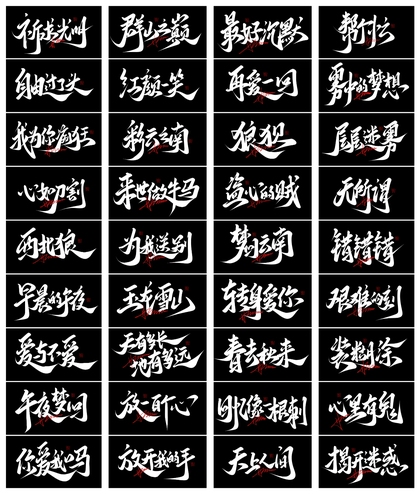 群山之巅
最好沉默
自由过了头
红颜一笑
再爱一回
雾中的梦想
我为你疯狂
彩云之南
狼狈
层层迷雾
心如刀割
来世做牛马
盗心的贼
无所谓
西北狼
为我送别
梦回云南
错错错
早晨的午夜
玉龙雪山
转身爱你
艰难的到
爱与不爱
天有多长
地有多远
春去秋来
装糊涂
午夜梦回
放一百个心
回忆像一根刺
心里有鬼
你爱我吗
放开我的手
天上人间
揭开迷惑